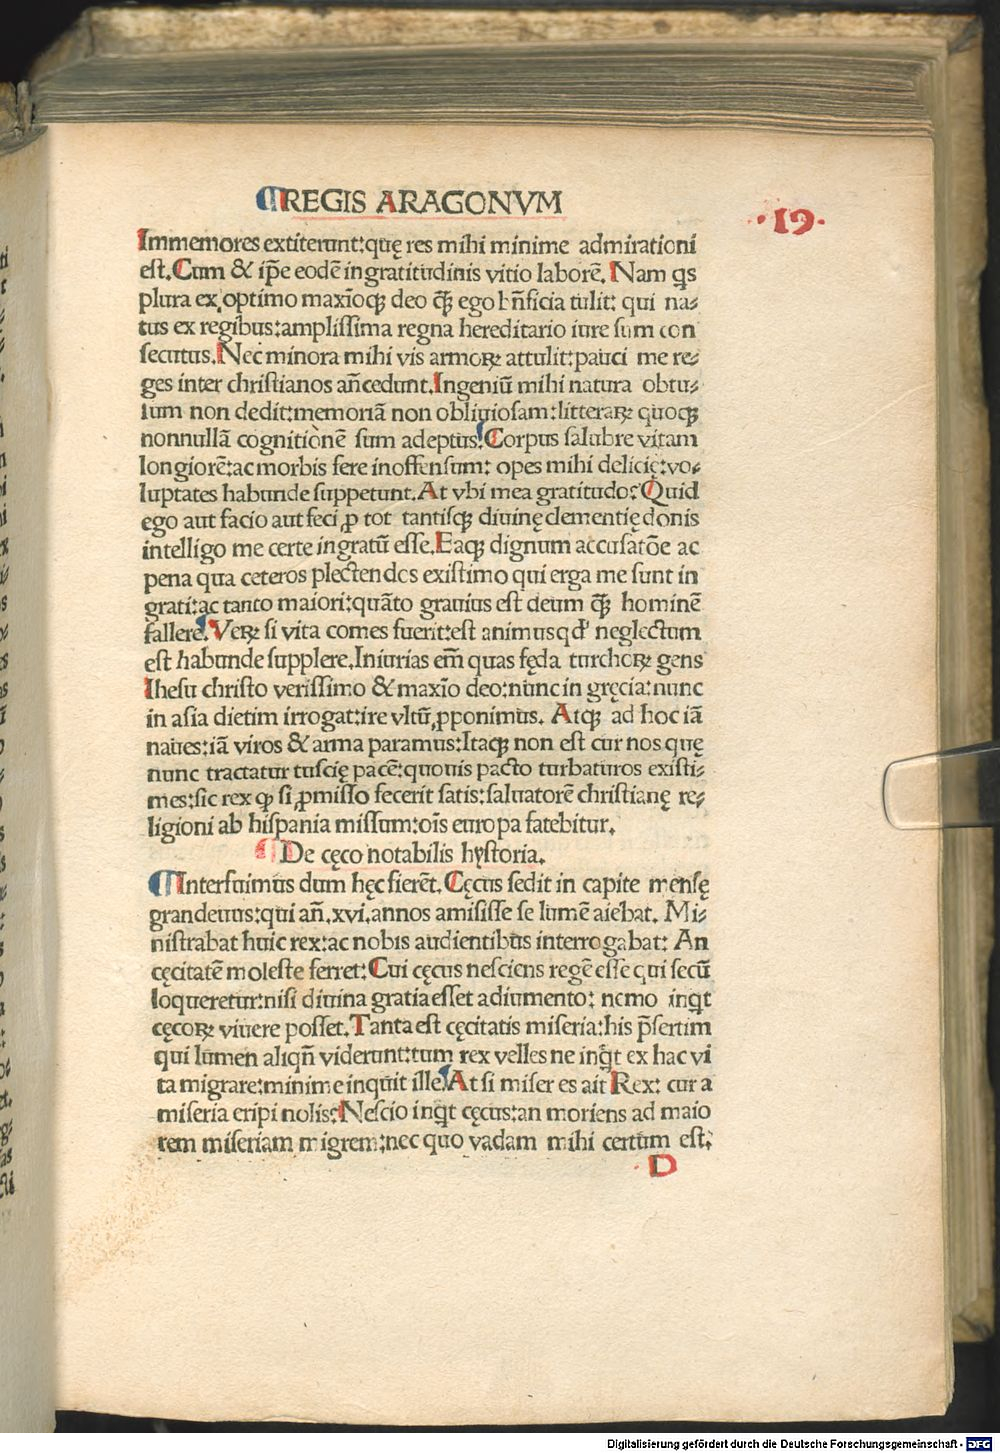 REGIS ARAGONVM
·19·
Immemores extiterunt:quę res mihi minime admirationi
est.Cum & ip̄e eodē ingratitudinis vitio laborē.Nam q̇s
plura ex optimo maxīoqꝫ deo q̄ꝫ ego bn̄ficia tulit: qui na⸗
tus ex regibus:amplissima regna hereditario iure sum con
secutus.Nec minora mihi vis armoꝝ attulit:pauci me re⸗
ges inter christianos an̄cedunt.Ingeniū mihi natura obtu⸗
sum non dedit:memoriā non obliuiosam:litteraꝝ quoqꝫ
nonnullā cognitionē sum adeptus.Corpus salubre vitam
longiorē:ac morbis fere inoffensum: opes mihi delicię:vo⸗
luptates habunde suppetunt.At vbi mea gratitudo?Quid
ego aut facio aut feci ꝓ tot tantisqꝫ diuinę clementię donis
intelligo me certe ingratū esse.Eaqꝫ dignum accusatōe ac
pena qua ceteros plectendos existimo qui erga me sunt in
grati:ac tanto maiori:quāto grauius est deum q̄ꝫ hominē
fallere.Veꝝ si vita comes fuerit:est animus qd' neglectum
est habunde supplere.Iniurias em̄ quas fęda turchoꝝ gens
Ihesu christo verissimo & maxīo deo:nunc in gręcia:nunc
in asia dietim irrogat:ire vltū ꝓponimus. Atqꝫ ad hoc iā
naues:iā viros & arma paramus:Itaqꝫ non est cur nos quę
nunc tractatur tuscię pacē:quouis pacto turbaturos existi⸗
mes:sic rex qꝫ si ꝓmisso fecerit satis:saluatorē christianę re⸗
ligioni ab hispania missum:oīs europa fatebitur.
De cęco notabilis hystoria.
Interfuimus dum hęc fierēt.Cęcus sedit in capite mensę
grandeuus:qui an̄.xvi.annos amisisse se lumē aiebat. Mi⸗
nistrabat huic rex:ac nobis audientibus interrogabat: An
cęcitatē moleste ferret:Cui cęcus nesciens regē esse qui secū
loqueretur:nisi diuina gratia esset adiumento: nemo inq̇t
cęcoꝝ viuere posset.Tanta est cęcitatis miseria:his p̄sertim
qui lumen aliqn̄ viderunt:tum rex velles ne inq̇t ex hac vi
ta migrare:minime inquit ille.At si miser es ait Rex: cur a
miseria eripi nolis?Nescio inq̇t cęcus:an moriens ad maio
rem miseriam migrem:nec quo vadam mihi certum est.
D
Digitalisierung gefördert durch die Deutsche Forschungsgemeinschaft - DFG